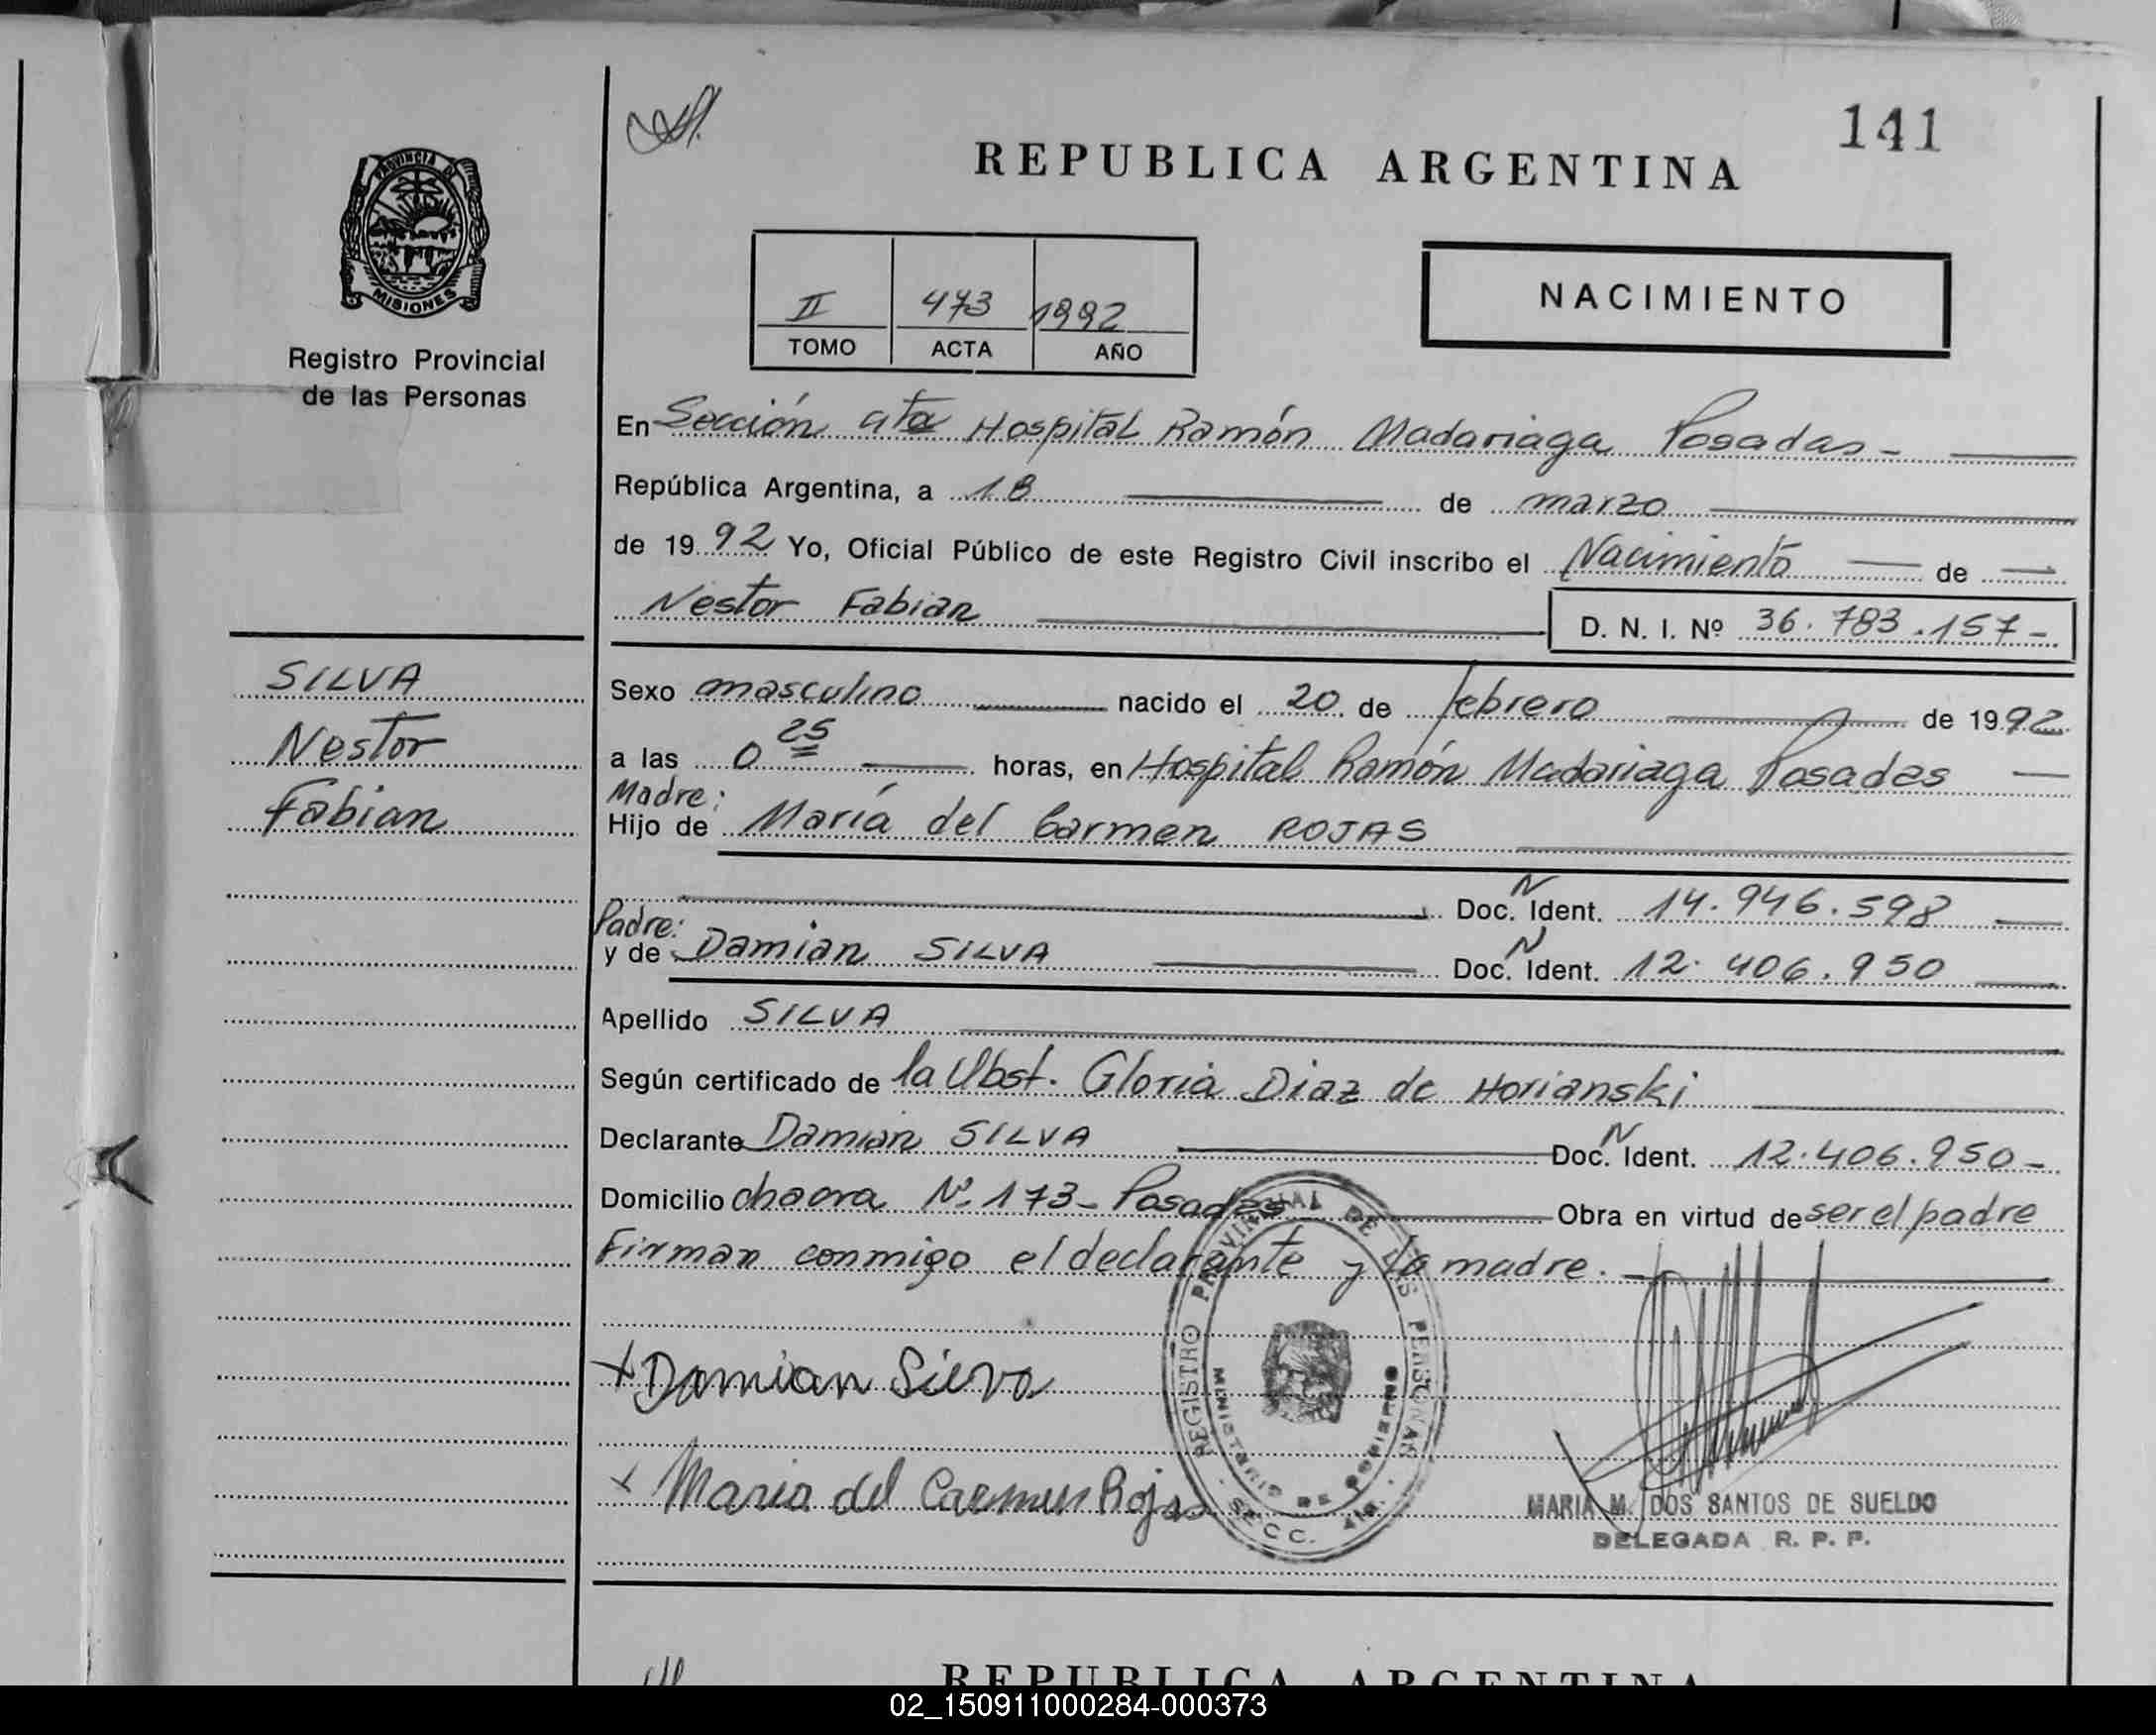 141
REPUBLICA ARGENTINA
PROVINCIA DE
MISIONES
Registro Provincial
de las Personas
II 473 1992
TOMO ACTA AÑO
NACIMIENTO
En Sección 4ta Hospital Ramón Madariaga Posadas -
República Argentina, a 18 de marzo
de 1992 Yo, Oficial Público de este Registro Civil inscribo el Nacimiento de
Nestor Fabian D. N. I. Nº 36.783.157-
SILVA
Nestor
Fabian
Sexo masculino nacido el 20 de febrero de 1992
a las 0 25 horas, en Hospital Ramón Madariaga Posadas
Madre:
Hijo de María del Carmen ROJAS
N
Doc. Ident. 14.946.598
Padre: N
y de Damian SILVA Doc. Ident. 12.406.950
Apellido SILVA
Según certificado de la Obst. Gloria Diaz de Horianski
N
Declarante Damian SILVA Doc. Ident. 12.406.950-
Domicilio chacra Nº 173- Posadas Obra en virtud de ser el padre
Firman conmigo el declarante y la madre.
REGISTRO PROVINCIAL DE LAS PERSONAS
MINISTERIO DE GOBIERNO
SECC.
x Damian Silva
x Maria del Carmen Rojas
MARIA M. DOS SANTOS DE SUELDO
DELEGADA R. P. P.
REPUBLICA ARGENTINA
02_150911000284-000373